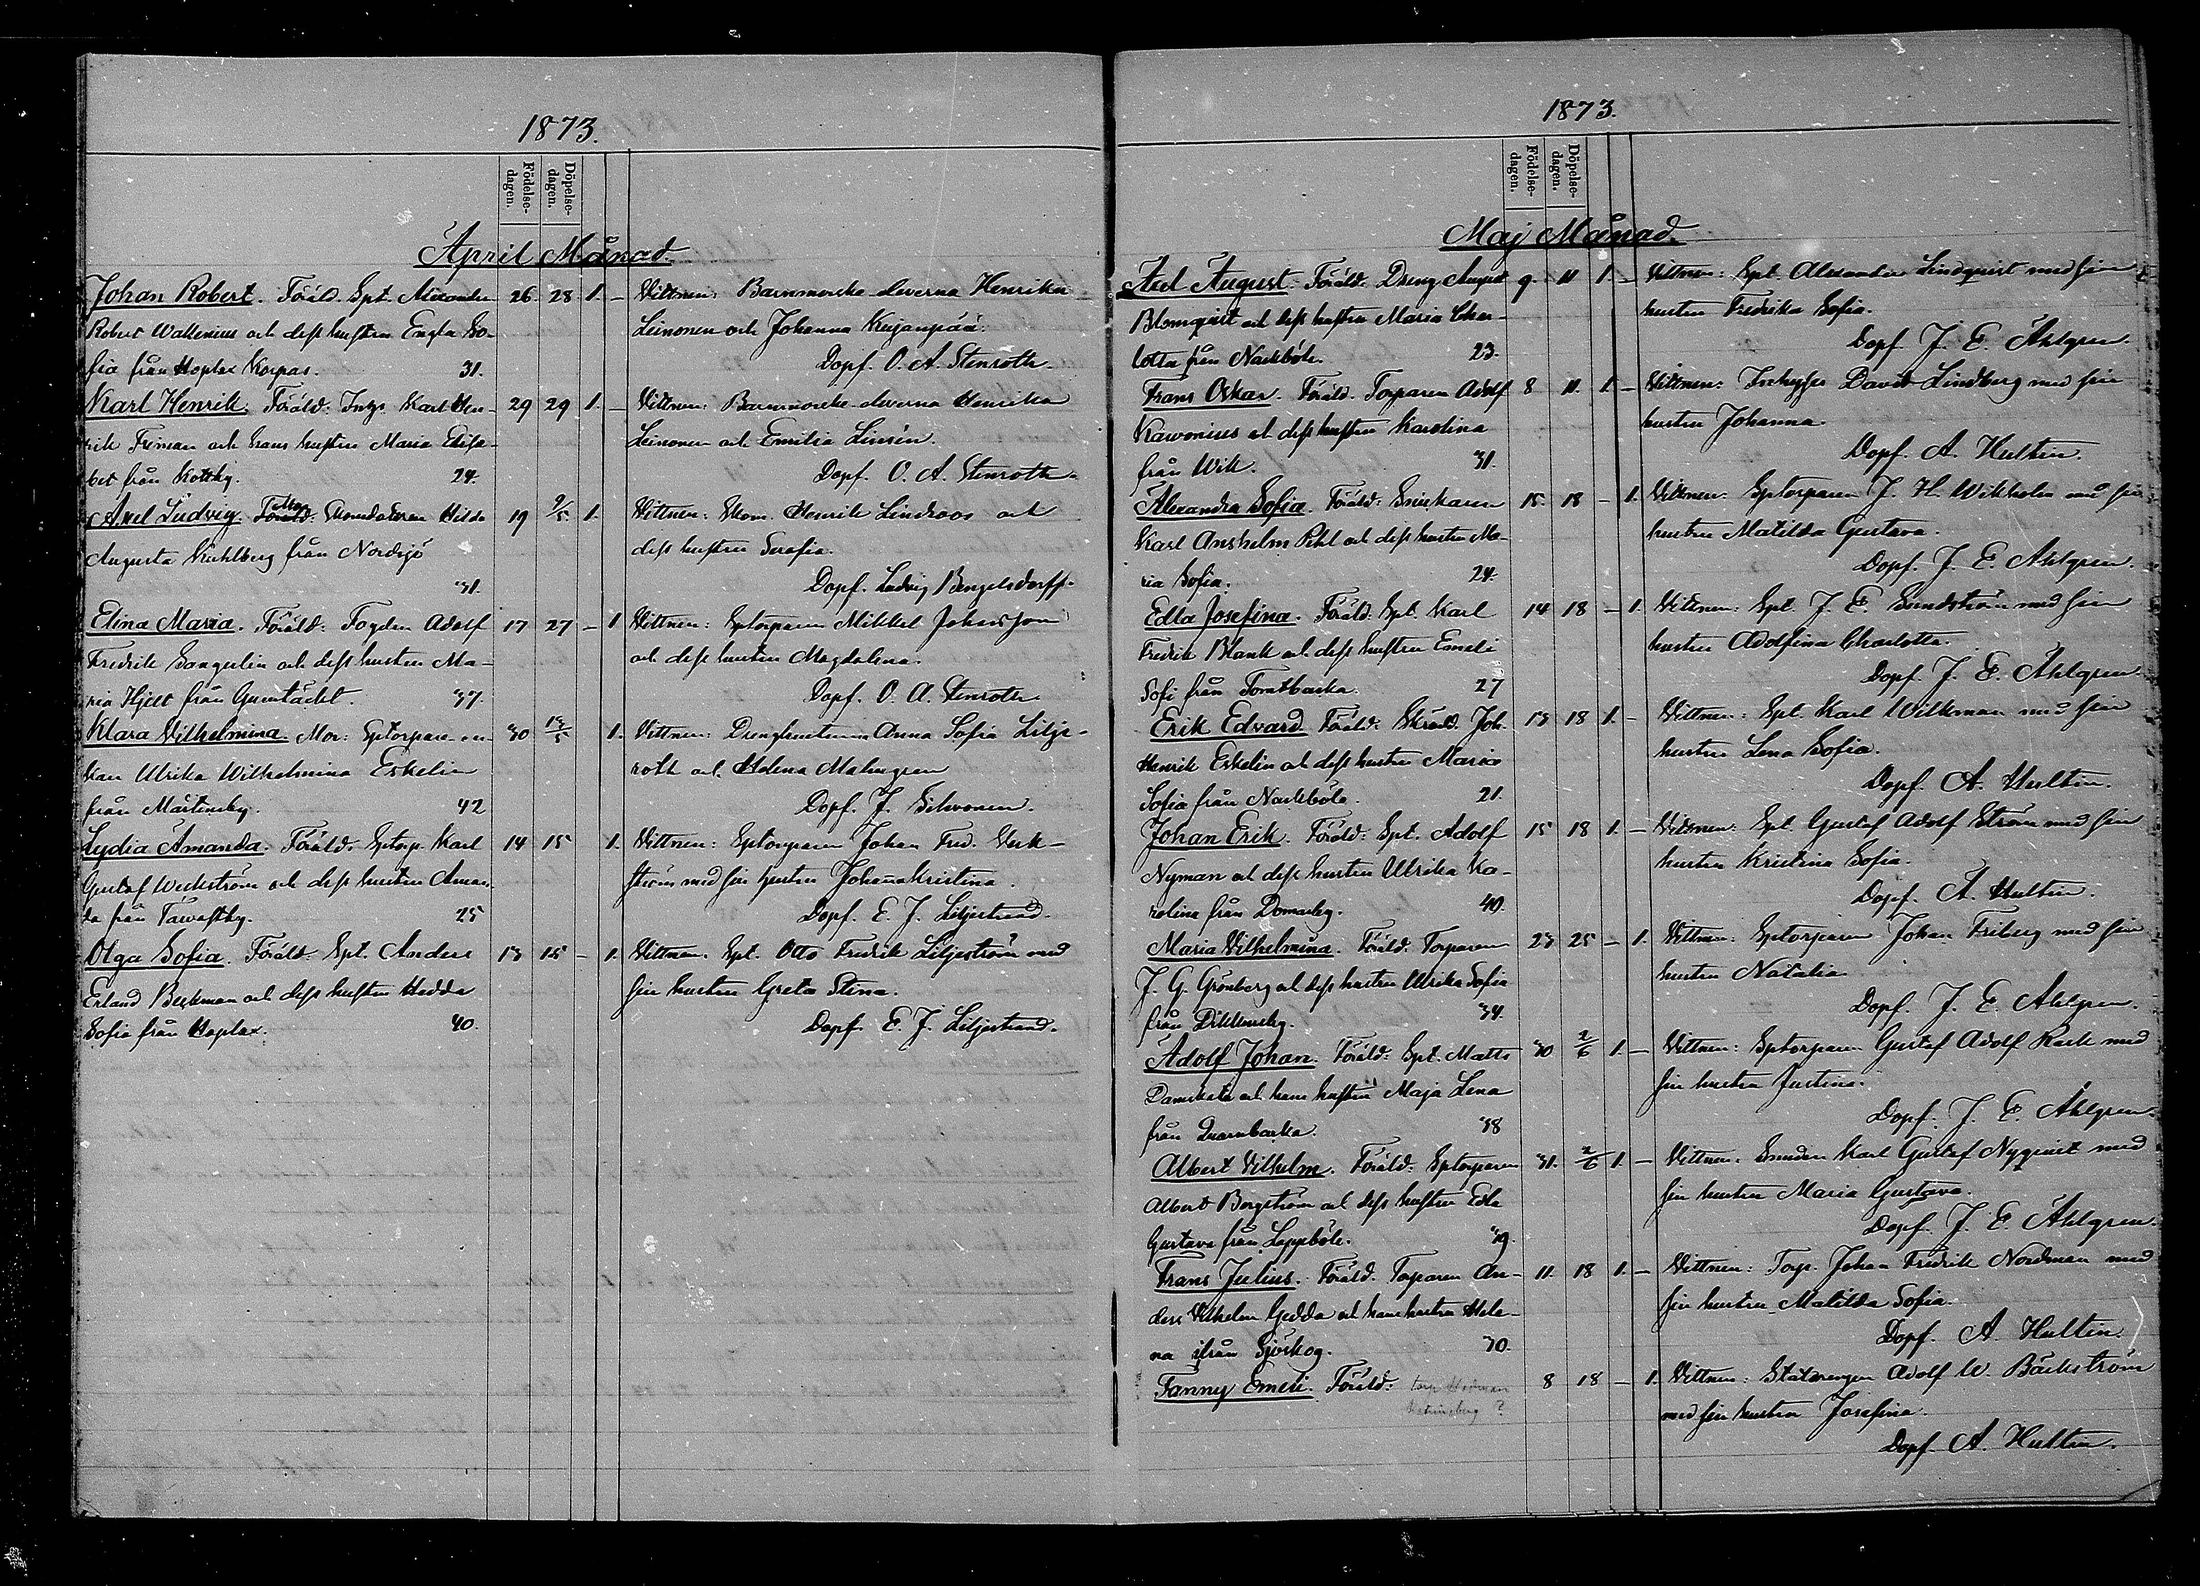 1873.
Födelse-
dagen.
Döpelse-
dagen.
April Månad.
Johan Robert. Föräld. Spt. Alexander 26. 28 1. — Vittnen: Barnmorske eleverna Henrika
Robert Wallenius och dess hustru Engla So- Leinonen och Johanna Kujanpää.
fia från Hoplax Korpas. 31. Döpf. O. A. Stenroth.
Karl Henrik. Föräld: Inhys. Karl Hen- 29 29 1. — Vittnen: Barnmorske eleverna Henrika
rik Friman och hans hustru Maria Elisa- Leinonen och Emilia Linsén.
bet från Kottby. 24. Döpf. O. A. Stenroth.
Axel Ludvig. Föräld: Hilda 19 2/5 1. Vittnen: Skom. Henrik Lindroos och
Augusta Kuhlberg från Nordsjö dess hustru Serafia.
31. Döpf. Ludvig Bengelsdorff.
Elina Maria. Föräld: Fogden Adolf 17 27 — 1 Vittnen: Sptorparen Mikkel Johansson
Fredrik Sangelin och dess hustru Ma- och dess hustru Magdalena.
ria Hjelt från Gumtäckt. 37. Döpf. O. A. Stenroth.
Klara Vilhelmina. Mor: Sptorpare en- 30 13/5 1. Vittnen: Dränghustrurna Anna Sofia Lilje-
kan Ulrika Wilhelmina Eskelin roth och Helena Malmgren
från Mårtensby. 42 Döpf. J. Silvonen.
Lydia Amanda. Föräld: Sptorp. Karl 14 15 1. Vittnen: Sptorparen Johan Fred. Verk-
Gustaf Weckström och dess hustru Aman- ström med sin hustru Johanna Kristina.
da från Tavastby. 25 Döpf. E. J. Liljestrand.
Olga Sofia. Föräld: Spt. Anders 13 15 — 1. Vittnen. Spt. Otto Fredrik Liljeström med
Erland Beckman och dess hustru Hedda sin hustru Greta Stina.
Sofia från Hoplax. 40. Döpf. E. J. Liljestrand.
1873.
Födelse-
dagen.
Döpelse-
dagen.
Maj Månad.
Axel August. Föräld: Dreng August 9. 11 1. — Vittnen: Spt. Alexander Lindquist med sin
Blomqvist och dess hustru Maria Char- hustru Fredrika Sofia.
lotta från Nackböle. 23. Döpf. J. E. Åhlgren.
Frans Oskar. Föräld. Torparen Adolf 8 11. 1. — Vittnen: Inhysse David Lindberg med sin
Kawonius och dess hustru Karolina hustru Johanna.
från Wik. 31. Döpf. A. Hultin.
Alexandra Sofia. Föräld: Snickaren 15. 18 — 1. Vittnen: Sptorparen J. H. Wikholm med sin
Karl Anshelm Pihl och dess hustru Ma- hustru Matilda Gustava.
ria Sofia. 24. Döpf. J. E. Åhlgren.
Edla Josefina. Föräld: Spt. Karl 14 18 — 1. Vittnen: Spt. J. E. Sundström med sin
Fredrik Blank och dess hustru Emeli hustru Adolfina Charlotta.
Sofi från Tomtbacka. 27 Döpf. J. E. Åhlgren.
Erik Edvard. Föräld: Skrädd. Joh. 13 18 1. — Vittnen: Spt. Karl Wilkman med sin
Henrik Eskelin och dess hustru Maria hustru Lena Sofia.
Sofia från Nackböle. 21. Döpf. A. Hultin.
Johan Erik. Föräld: Spt. Adolf 15 18 1. — Vittnen: Spt. Gustaf Adolf Ström med sin
Nyman och dess hustru Ulrika Ka- hustru Kristina Sofia.
rolina från Domarby. 40. Döpf. A. Hultin.
Maria Vilhelmina. Föräld: Torparen 23 25 — 1. Vittnen: Sptorparen Johan Friberg med sin
J. G. Grönberg och dess hustru Ulrika Sofia hustru Natalia.
från Dickursby. 34. Döpf. J. E. Åhlgren.
Adolf Johan. Föräld: Spt. Matts 30 2/6 1. — Vittnen: Sptorparen Gustaf Adolf Rask med
och hans hustru Maja Lena sin hustru Justina.
från Qvarnbacka. 38 Döpf. J. E. Åhlgren.
Albert Vilhelm. Föräld: Sptorparen 31. 2/6 1. — Vittnen: Smeden Karl Gustaf Nyqvist med
Albert Borgström och dess hustru Edla sin hustru Maria Gustava.
Gustava från Lappböle. 39. Döpf. J. E. Åhlgren.
Frans Julius. Föräld. Torparen An- 11. 18 1. — Vittnen: Torp. Johan Fredrik Nordman med
ders Vilhelm Gedda och hans hustru Hele- sin hustru Matilda Sofia.
na ifrån Sjöskog. 30. Döpf. A. Hultin.
Fanny Emeli. Föräld: torp 8 18 — 1. Vittnen: Statdrengen Adolf W. Bäckström
med sin hustru Josefina.
Döpf. A. Hultin.